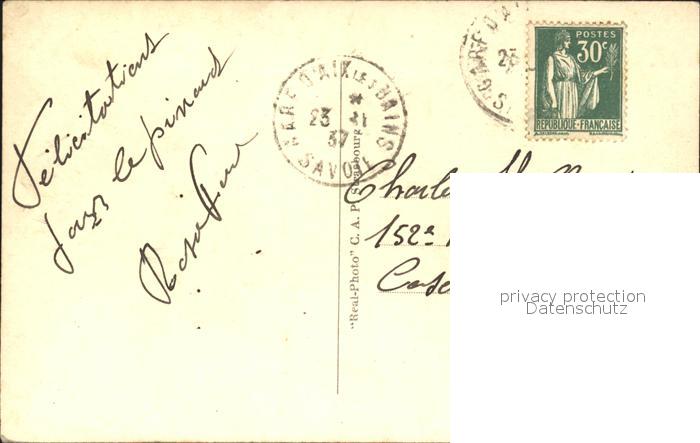 Félicitations
pour le pinard
GARE D'AIX LES BAINS
23 -1
37
SAVOIE
GARE D'A
23
S
POSTES
30c
REPUBLIQUE-FRANÇAISE
"Real-Photo" C. A. P. Strasbourg
Charles
152e
Case
privacy protection
Datenschutz